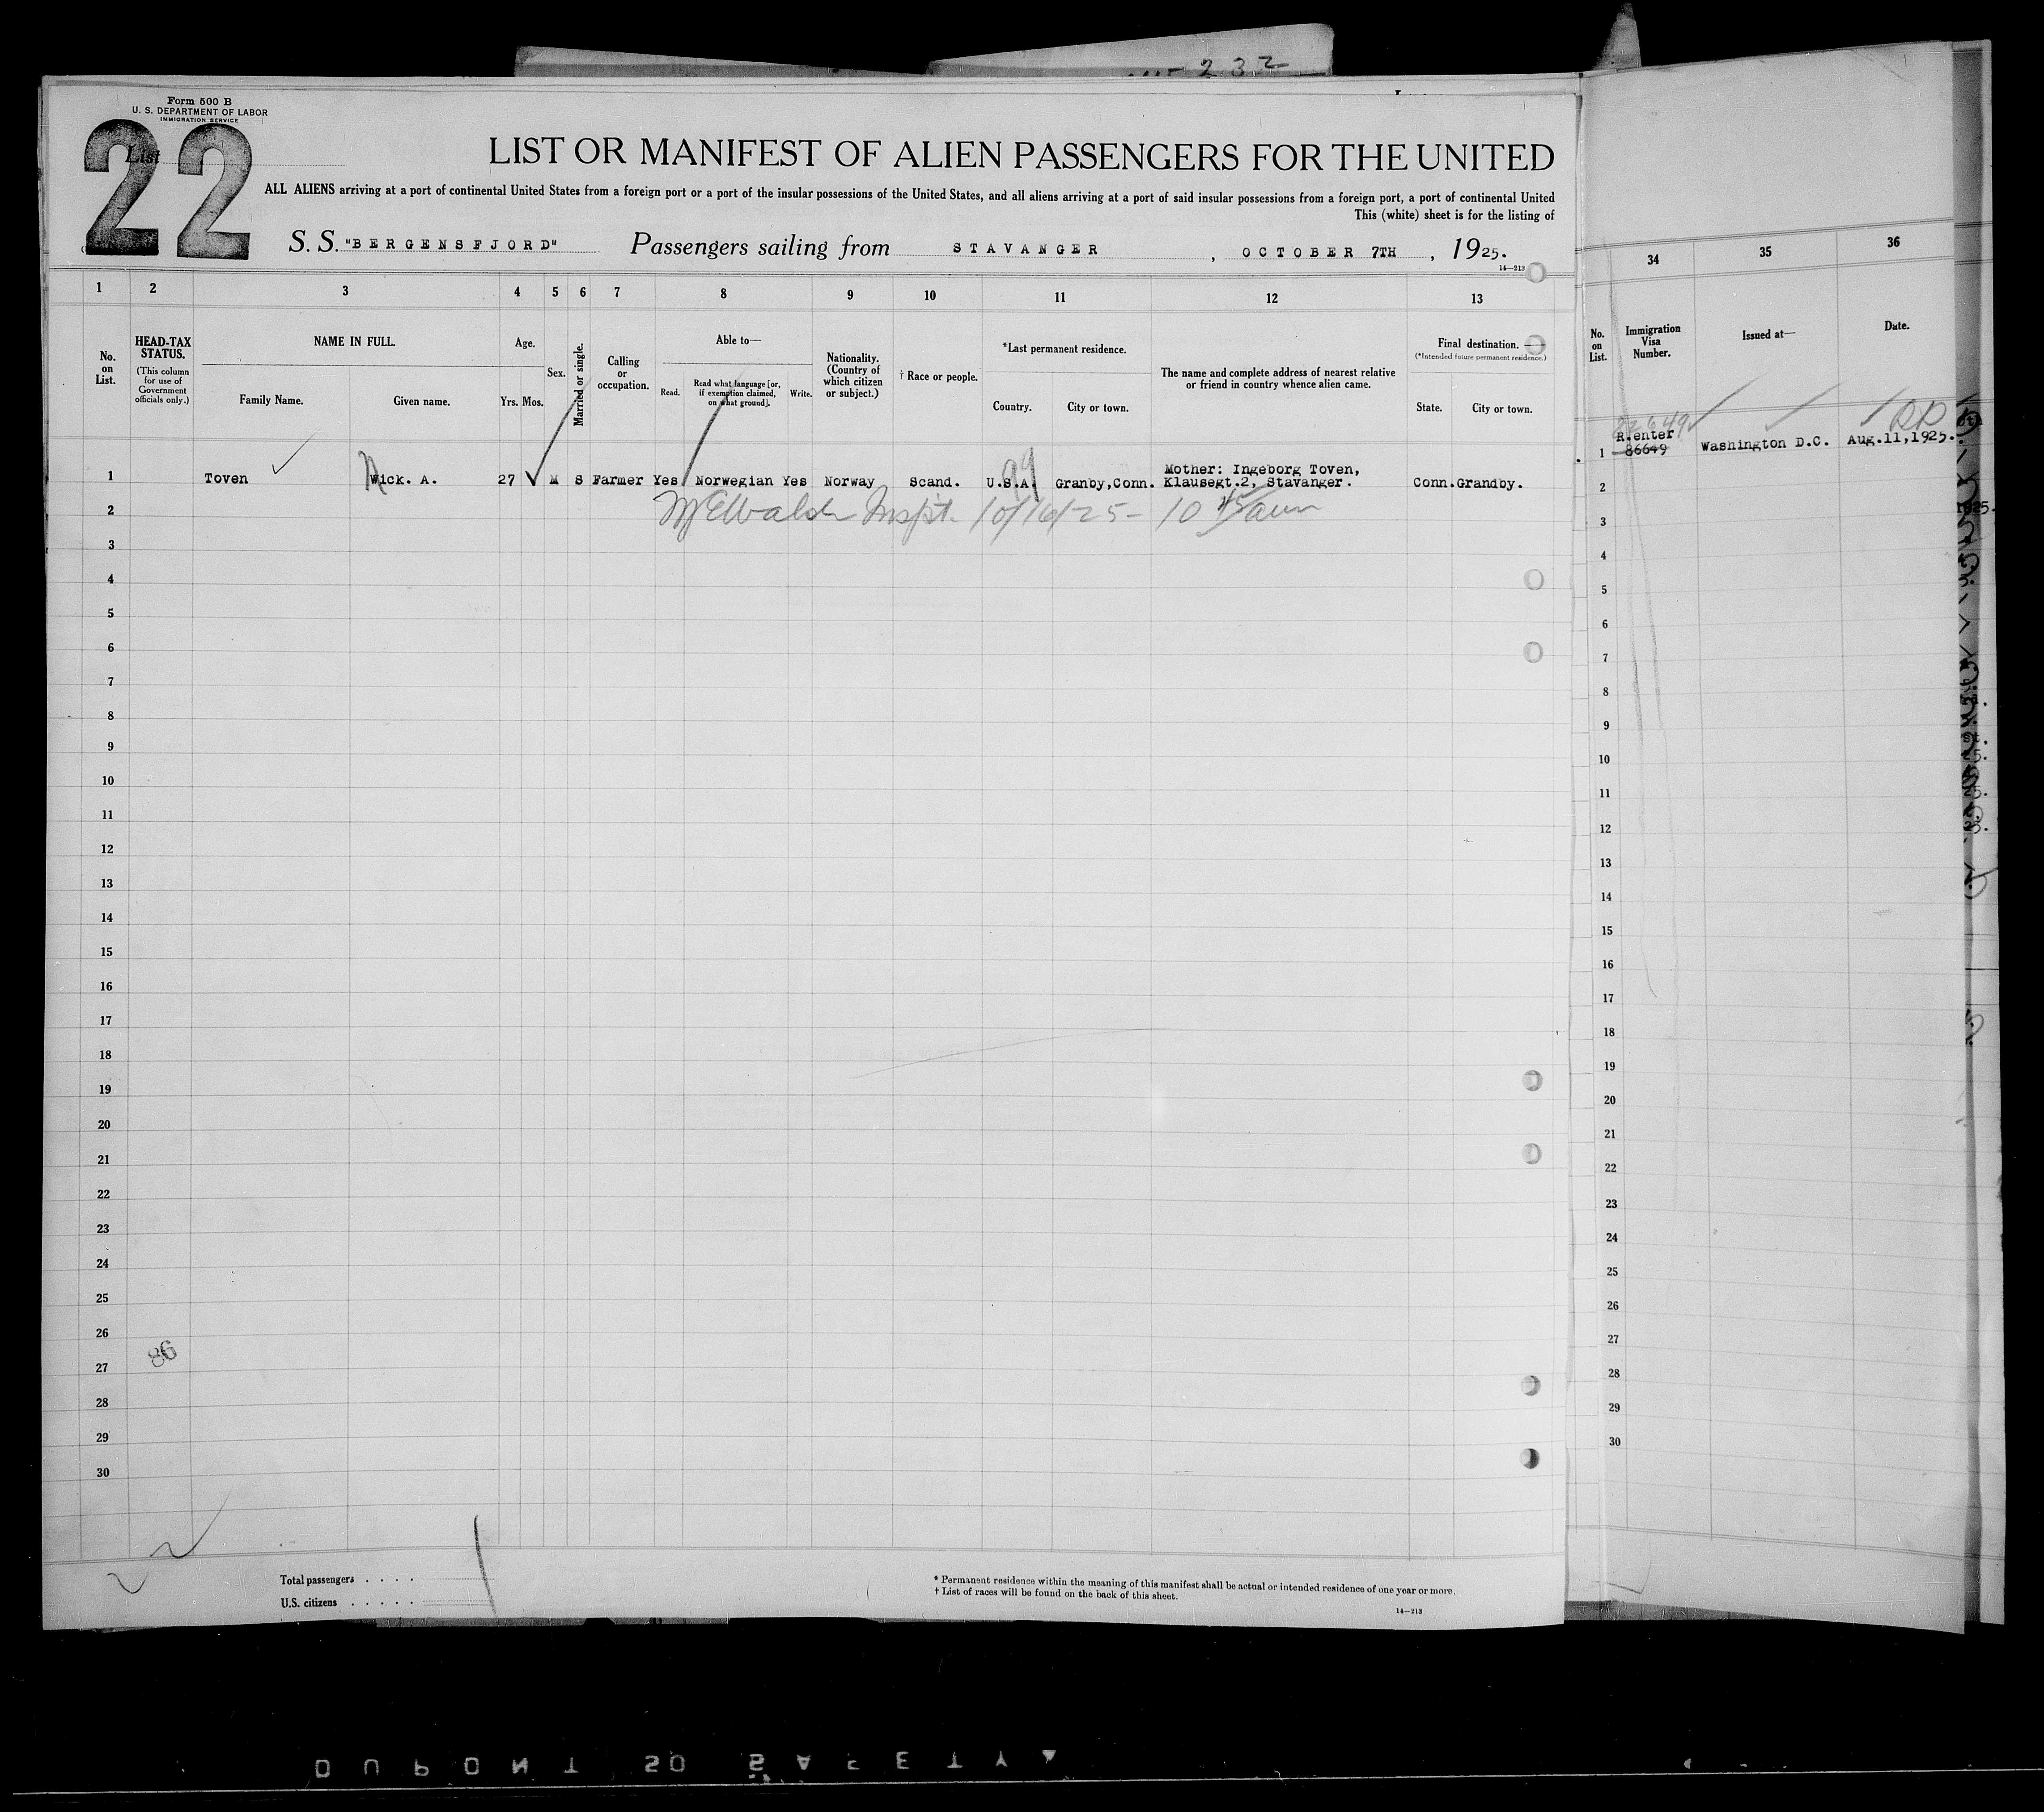 232
Form 500 B
U. S. DEPARTMENT OF LABOR
IMMIGRATION SERVICE
List
22
LIST OR MANIFEST OF ALIEN PASSENGERS FOR THE UNITED
ALL ALIENS arriving at a port of continental United States from a foreign port or a port of the insular possessions of the United States, and all aliens arriving at a port of said insular possessions from a foreign port, a port of continental United
This (white) sheet is for the listing of
S. S. "BERGENSFJORD" Passengers sailing from STAVANGER, OCTOBER 7TH, 1925.
14—213
1 2 3 4 5 6 7 8 9 10 11 12 13
No. on List.
HEAD-TAX STATUS.
(This column for use of Government officials only.)
NAME IN FULL.
Family Name. Given name.
Age.
Yrs. Mos.
Sex.
Married or single.
Calling or occupation.
Able to—
Read. Read what language [or, if exemption claimed, on what ground]. Write.
Nationality. (Country of which citizen or subject.)
† Race or people.
*Last permanent residence.
Country. City or town.
The name and complete address of nearest relative or friend in country whence alien came.
Final destination.
(*Intended future permanent residence.)
State. City or town.
1 Toven Wick. A. 27 M S Farmer Yes Norwegian Yes Norway Scand. U.S.A. Granby,Conn. Mother: Ingeborg Toven, Klausegt.2, Stavanger. Conn. Grandby.
2 Inspt. 10/16/25- 10 45 am
3
4
5
6
7
8
9
10
11
12
13
14
15
16
17
18
19
20
21
22
23
24
25
26
27
28
29
30
86
Total passengers . . . .
U.S. citizens . . . . .
* Permanent residence within the meaning of this manifest shall be actual or intended residence of one year or more.
† List of races will be found on the back of this sheet.
14—213
34 35 36
No. on List.
Immigration Visa Number.
Issued at—
Date.
82649
R.enter
1 86649 Washington D.C. Aug.11,1925.
2
3
4
5
6
7
8
9
10
11
12
13
14
15
16
17
18
19
20
21
22
23
24
25
26
27
28
29
30
DUPONT SO SAFETY